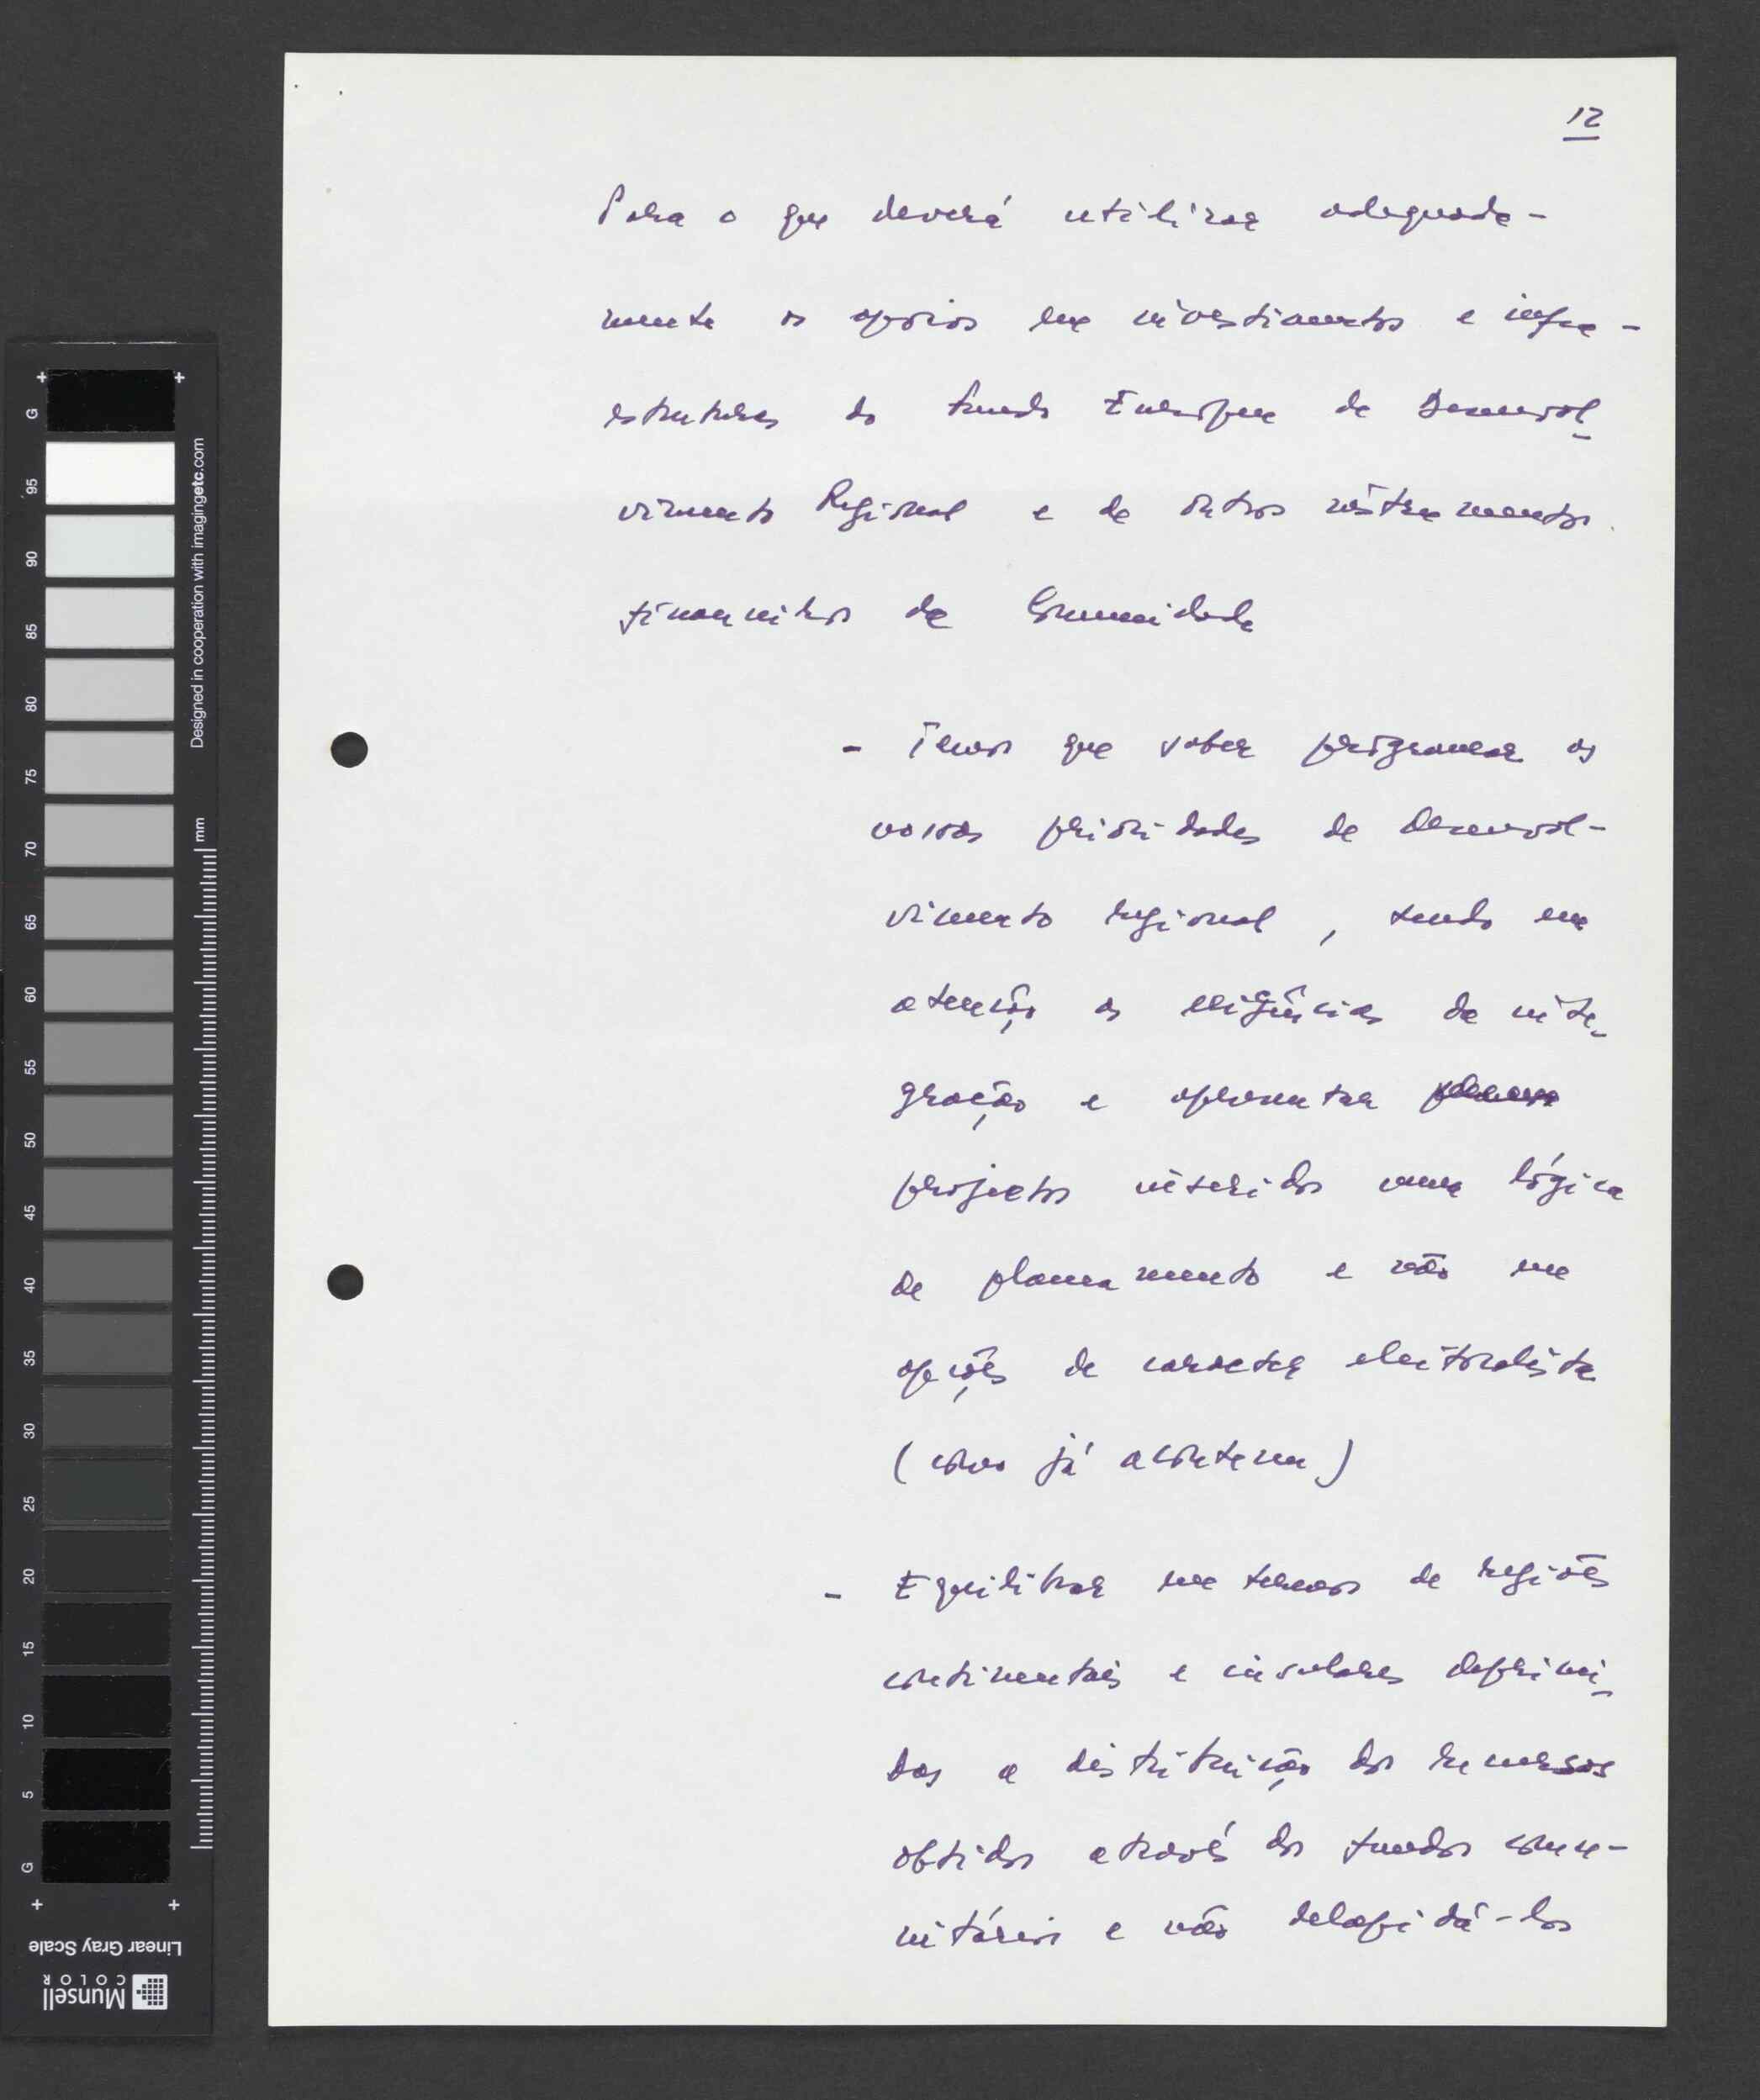 12
Para o que deverá utilizar adequada-
mente os apoios em investimentos e infra-
estruturas do Fundo Europeu de Desenvol-
vimento Regional e de outros instrumentos
financeiros da Comunidade
- Temos que saber programar as
nossas prioridades de desenvol-
vimento regional, tendo em
atenção as exigências da inte-
gração e apresentar
projectos inseridos numa lógica
de planeamento e não em
opções de caracter eleitoralista
(como já aconteceu)
- Equilibrar em termos de regiões
continentais e insulares deprimi-
das a distribuição dos recursos
obtidos através dos fundos comu-
nitários e não delapidá-los
G
95
90
85
80
75
70
65
60
55
50
45
40
35
30
25
20
15
10
5
G
Designed in cooperation with imagingetc.com
mm
Linear Gray Scale
Munsell
COLOR